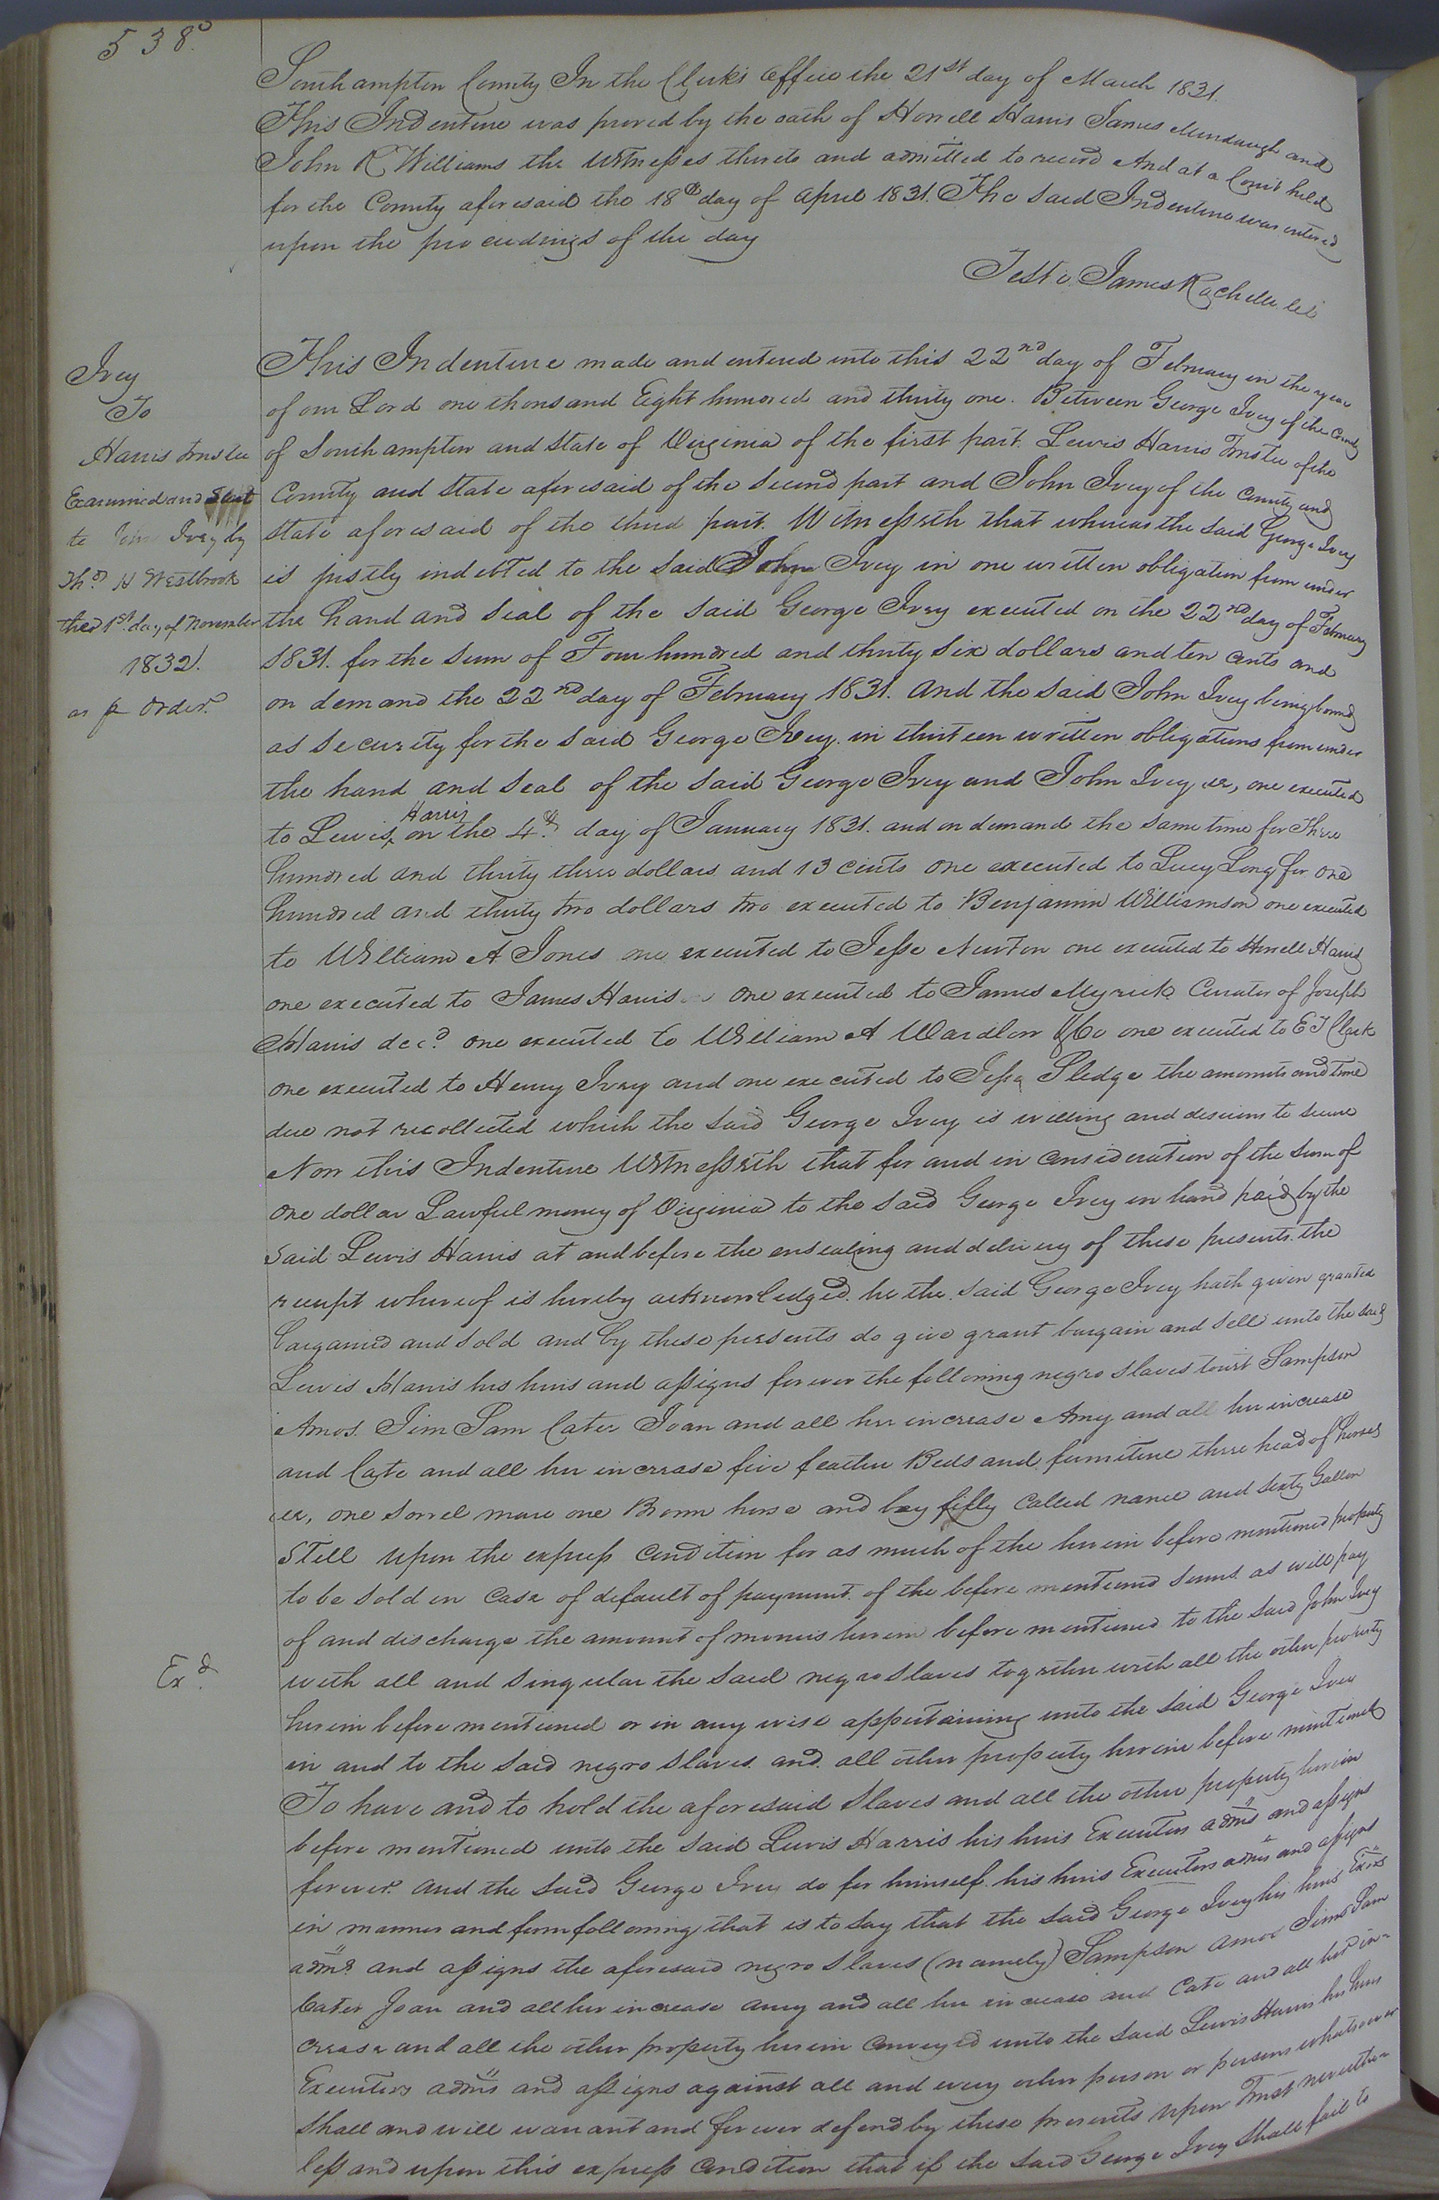 538
Southampton County In the Clerks Office the 21st day of March 1831.
This Indenture was proved by the oath of Howell Harris James Mundaugh and
John R Williams the Witnesses thereto and admitted to record And at a Court held
for the County aforesaid the 18th day of April 1831. The said Indenture was entered
upon the proceedings of the day
Teste. James Rochelle. clk
Ivey
To
Harris trustee
Examined and Sent
to John Ivey by
Thos H Westbrook
the 1st day of November
1832.
as p order.
This Indenture made and entered into this 22nd day of February in the year
of our Lord one thousand Eight hundred and thirty one. Between George Ivey of the County
of Southampton and State of Virginia of the first part. Lewis Harris Trustee of the
County and State aforesaid of the Second part and John Ivey of the County and
State aforesaid of the third part. Witnesseth that whereas the said George Ivey
is justly indebted to the said John Ivey in one written obligation from under
the hand and seal of the said George Ivey executed on the 22nd day of February
1831. for the sum of Four hundred and thirty six dollars and ten cents and
on demand the 22nd day of February 1831. And the said John Ivey being bound
as security for the said George Ivey. in thirteen written obligations from under
the hand and seal of the said George Ivey and John Ivey vr, one executed
to Lewis Harris on the 4th day of January 1831. and on demand the same time for Three
hundred and thirty three dollars and 13 cents one executed to Lucy Long for one
hundred and thirty two dollars two executed to Benjamin Williamson one executed
to William A Jones one executed to Jesse Newton one executed to Howell Harris
one executed to James Harris one executed to James Myrick Curator of Joseph
Harris decd. one executed to William A Wardlow & Co one executed to E J Clark
one executed to Henry Ivey and one executed to Jesse Sledge the amounts and time
due not recollected which the said George Ivey is willing and desirous to secure
Now this Indenture Witnesseth that for and in consideration of the sum of
one dollar Lawful money of Virginia to the said George Ivey in hand paid by the
said Lewis Harris at and before the ensealing and delivery of these presents. the
receipt whereof is hereby acknowledged. he the said George Ivey hath given granted
bargained and sold and by these presents do give grant bargain and sell unto the said
Lewis Harris his heirs and assigns forever the following negro slaves towit Sampson
Amos. Jim Sam Cater Joan and all her increase Amy and all her increase
and Cate and all her increase five feather Beds and furniture three head of horses
vr, one sorrel mare one Brown horse and bay filly called nance and sixty Gallon
Still upon the express condition for as much of the herein before mentioned property
to be sold in case of default of payment of the before mentioned sums as will pay
of and discharge the amount of monies herein before mentioned to the said John Ivey
with all and singular the said negro slaves together with all the other property
herein before mentioned or in any wise appertaining unto the said George Ivey
in and to the said negro slaves. and all other property herein before mentioned
To have and to hold the aforesaid slaves and all the other property herein
before mentioned unto the said Lewis Harris his heirs Executors adms and assigns
forever. And the said George Ivey do for himself. his heirs Executors adms and assigns
in manner and form following that is to say that the said George Ivey his heirs Exors
adms and assigns the aforesaid negro slaves (namely) Sampson Amos Jim Sam
Cater Joan and all her increase amy and all her increase and Cate and all her in-
crease and all the other property herein conveyed unto the said Lewis Harris his heirs
Executors adms and assigns against all and every other person or persons whatsoever
shall and will warrant and forever defend by these presents upon Trust neverthe-
less and upon this express condition that if the said George Ivey shall fail to
Exd.